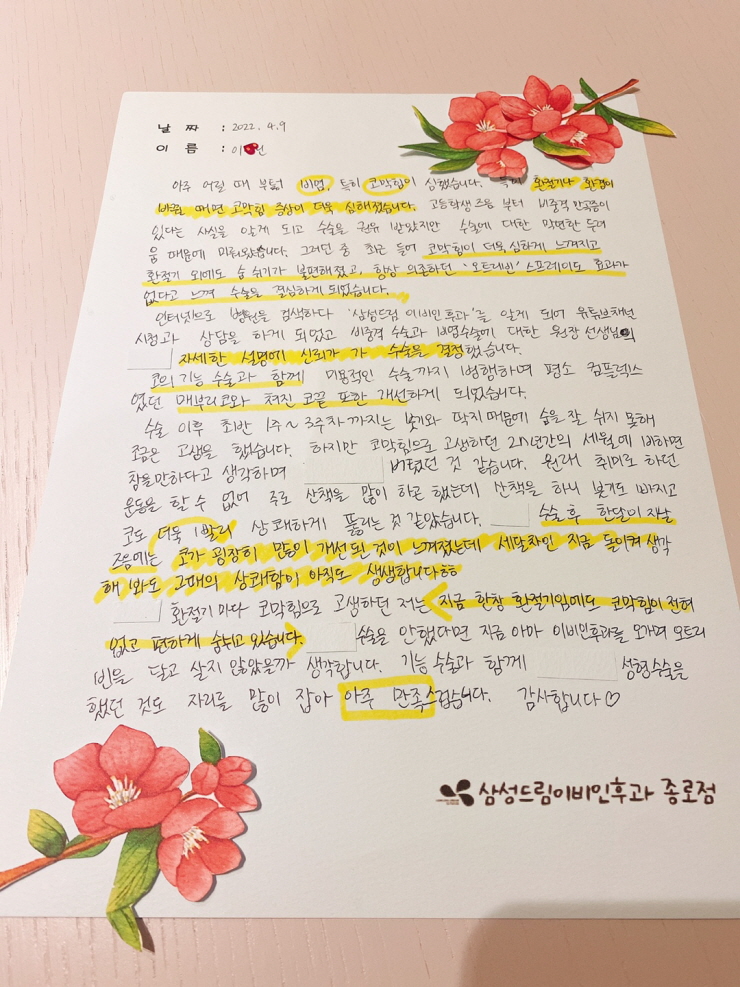 날 짜 : 2022. 4. 9
이 름 : 이 선
아주 어릴 때 부터 비염, 특히 코막힘이 심했습니다. 특히 환절기나 환경이
바뀔 때면 코막힘 증상이 더욱 심해졌습니다. 고등학생 즈음 부터 비중격 만곡증이
있다는 사실을 알게 되고 수술을 권유 받았지만 수술에 대한 막연한 두려
움 때문에 미뤄왔습니다. 그러던 중 최근 들어 코막힘이 더욱 심하게 느껴지고
환절기 외에도 숨 쉬기가 불편해졌고, 항상 의존하던 '오트리빈' 스프레이도 효과가
없다고 느껴 수술을 결심하게 되었습니다.
인터넷으로 병원을 검색하다 '삼성드림 이비인후과'를 알게 되어 유튜브채널
시청과 상담을 하게 되었고 비중격 수술과 비염수술에 대한 원장 선생님의
자세한 설명에 신뢰가 가 수술을 결정했습니다.
코의 기능 수술과 함께 미용적인 수술까지 병행하며 평소 컴플렉스
였던 매부리코와 쳐진 코끝 또한 개선하게 되었습니다.
수술 이후 초반 1주~3주차 까지는 붓기와 딱지 때문에 숨을 잘 쉬지 못해
조금은 고생을 했습니다. 하지만 코막힘으로 고생하던 2n년간의 세월에 비하면
참을만하다고 생각하며 버텼던 것 같습니다. 원래 취미로 하던
운동을 할 수 없어 주로 산책을 많이 하곤 했는데 산책을 하니 붓기도 빠지고
코도 더욱 빨리 상쾌하게 뚫리는 것 같았습니다. 수술 후 한달이 지날
즈음에는 코가 굉장히 많이 개선된 것이 느껴졌는데 세달차인 지금 돌이켜 생각
해 봐도 그때의 상쾌함이 아직도 생생합니다ㅎㅎ
환절기 마다 코막힘으로 고생하던 저는 지금 한창 환절기임에도 코막힘이 전혀
없고 편하게 숨쉬고 있습니다. 수술을 안했다면 지금 아마 이비인후과를 오가며 오트리
빈을 달고 살지 않았을까 생각합니다. 기능 수술과 함께 성형수술을
했던 것도 자리를 많이 잡아 아주 만족스럽습니다. 감사합니다♡
삼성드림이비인후과 종로점